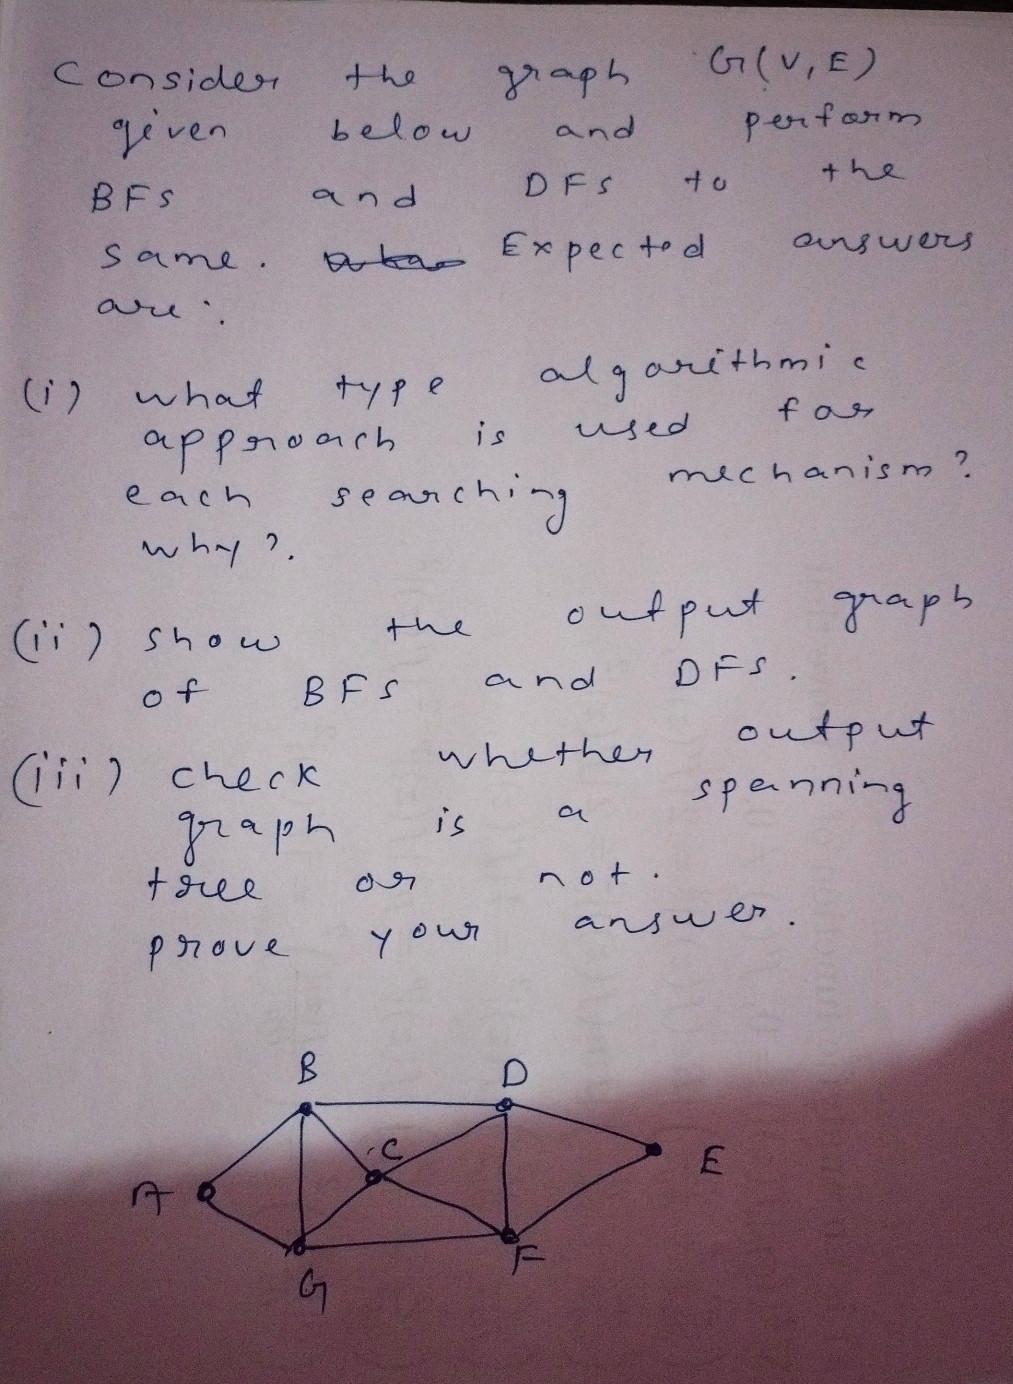 Consider the graph G(V,E)
given below and perform
BFS and DFS to the
same. Expected answers
are :
(i) what type algorithmic
approach is used for
each searching mechanism?
why?.
(ii) show the output graph
of BFS and DFS.
(iii) check whether output
graph is a spanning
tree or not.
prove your answer.
B D
C
A E
F
G